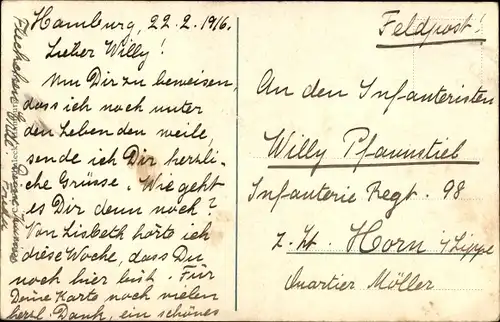 Hamburg, 22.2.1916.
Lieber Willy!
Um Dir zu beweisen,
dass ich noch unter
den Lebenden weile,
sende ich Dir herzli-
che Grüsse. Wie geht
es Dir denn noch?
Von Lisbeth hörte ich
diese Woche, dass Du
noch hier bist. Für
Deine Karte noch vielen
herzl. Dank, ein schönes
Feldpost!
An den Infanteristen
Willy Pfannstiel
Infanterie Regt. 98
z. Zt. Horn i/Lippe
Quartier Möller